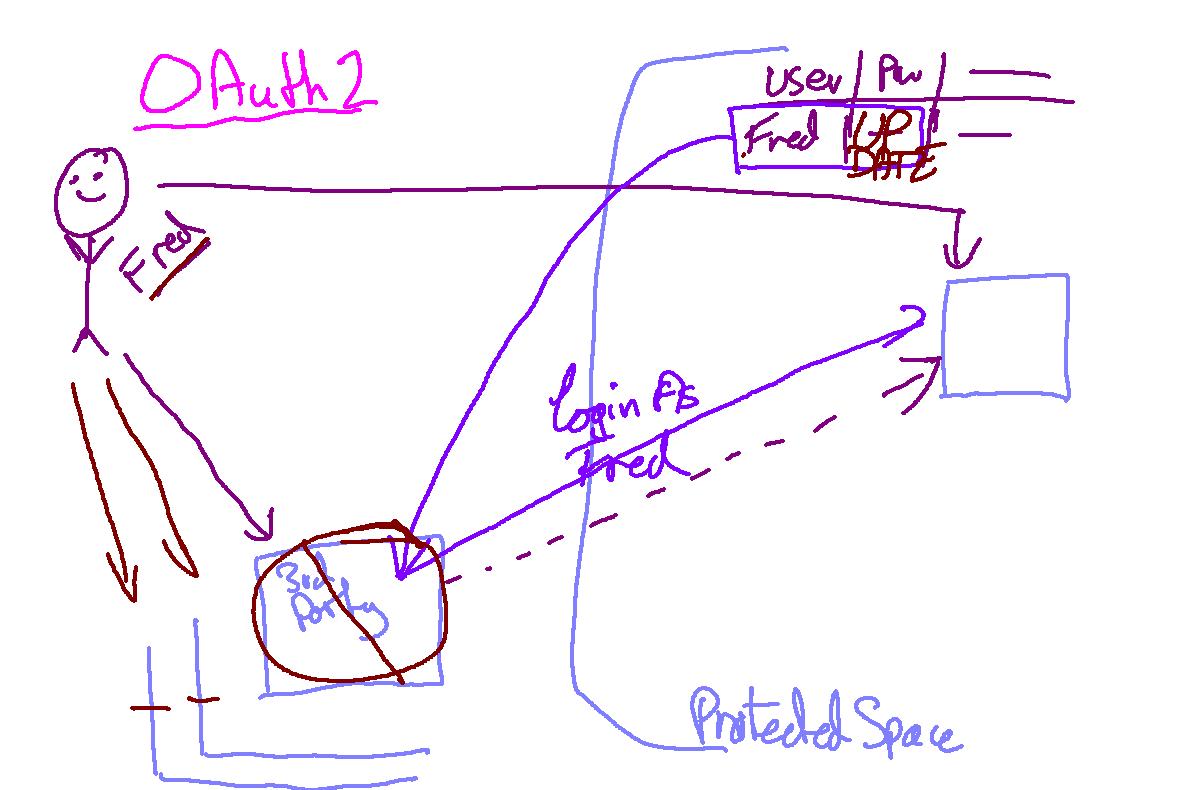 OAuth2
user Pw
Fred UP
DATE
Fred
Login As
Fred
3rd
Party
Protected Space